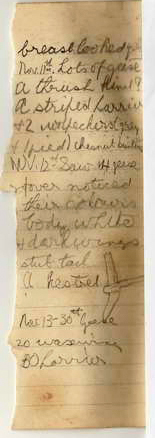 breast looked
Nov. 11th. Lots of geese
A thrush
A striped harrier
& 2 woodpeckers
(pied) chesnut
Nov 12th Saw 4 geese
over noticed
their colours
body white
& dark wings
stub tail
A kestrel
Nov 13-30th Geese
20 waxwing
30 harrier